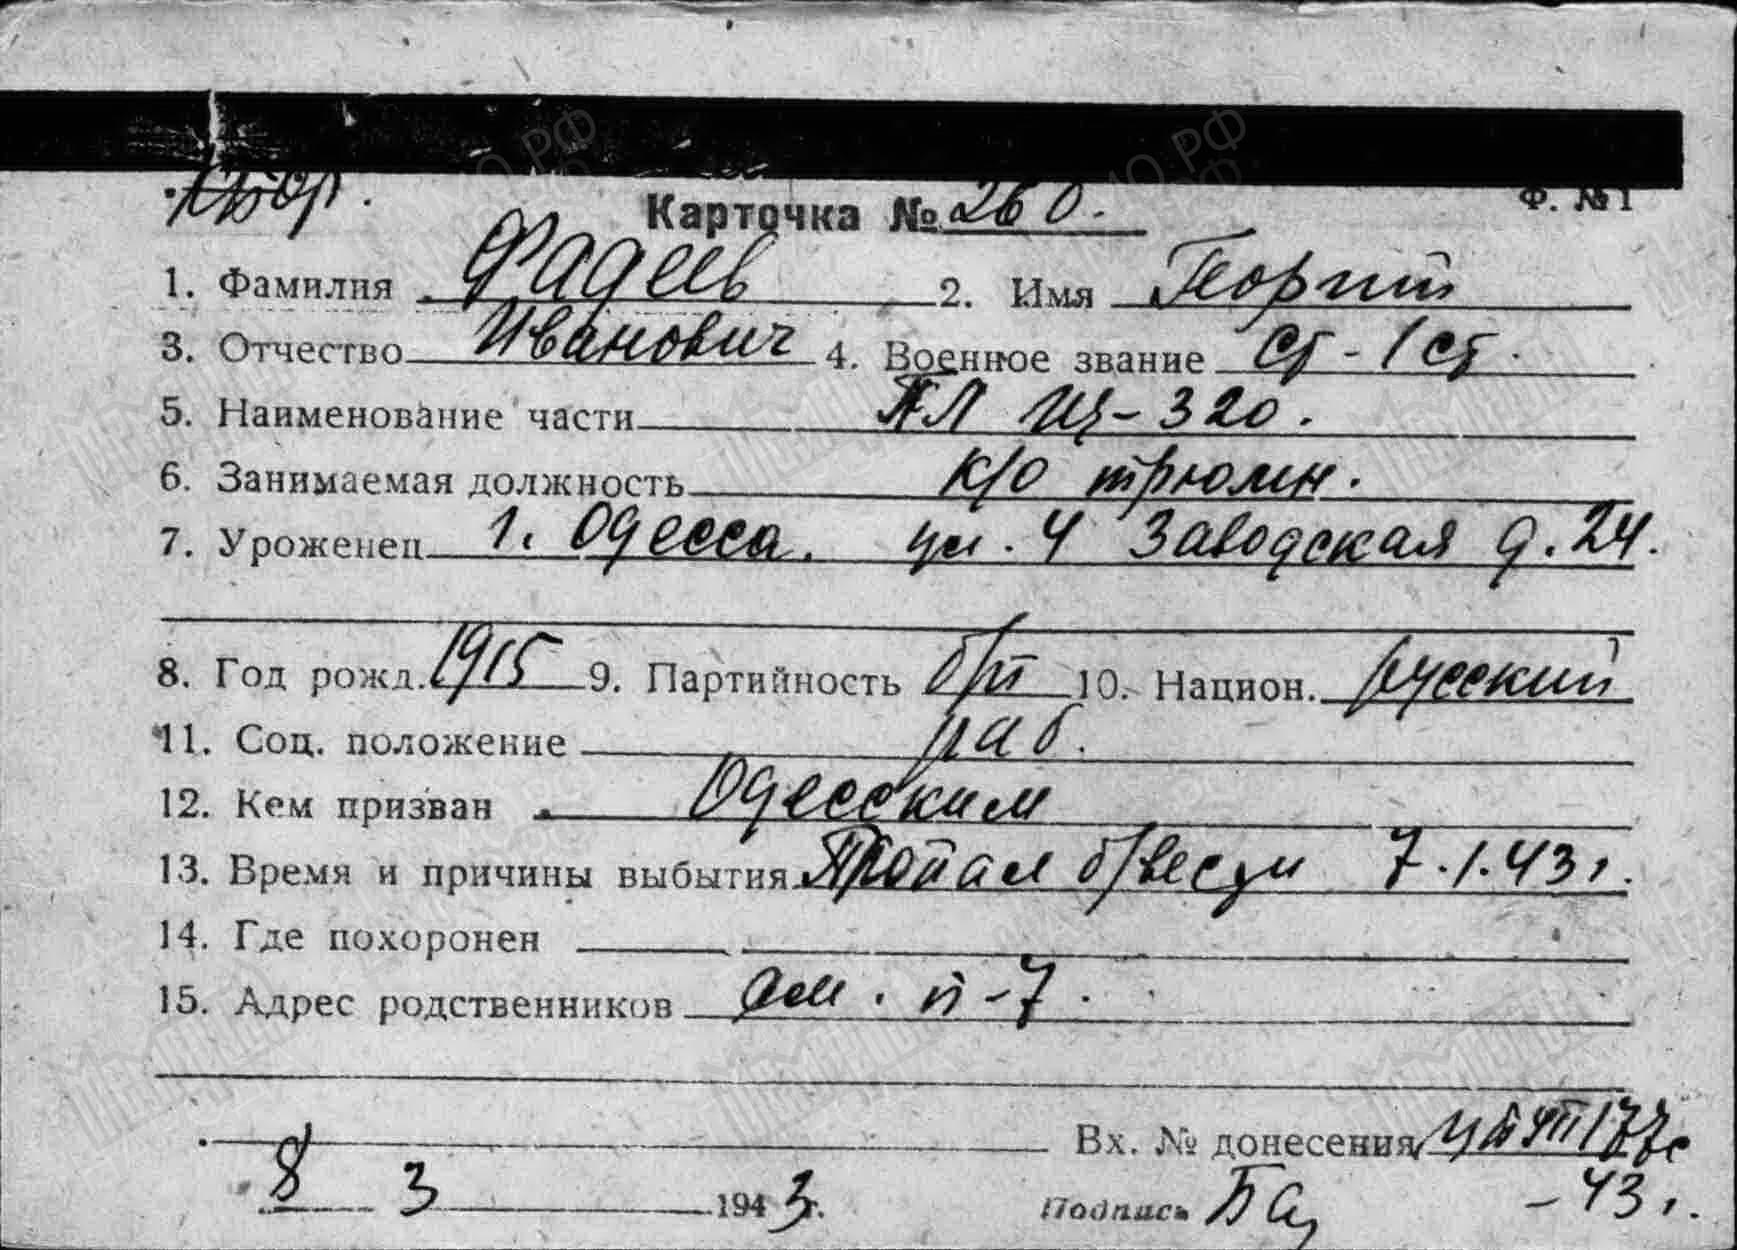 КБФ.
Ф. №1
Карточка № 260.
1. Фамилия Фадеев 2. Имя Георгий
3. Отчество Иванович 4. Военное звание Ст-1ст.
5. Наименование части ПЛ Щ-320.
6. Занимаемая должность к/о трюмн.
7. Уроженец г. Одесса. ул. 4 Заводская д. 24.
8. Год рожд. 1915 9. Партийность б/п 10. Национ. русский
11. Соц. положение раб.
12. Кем призван Одесским
13. Время и причины выбытия Пропал б/вести 7.1.43г.
14. Где похоронен
15. Адрес родственников см. п-7.
Вх. № донесения 177с
8 3 1943г. Подпись -43г.